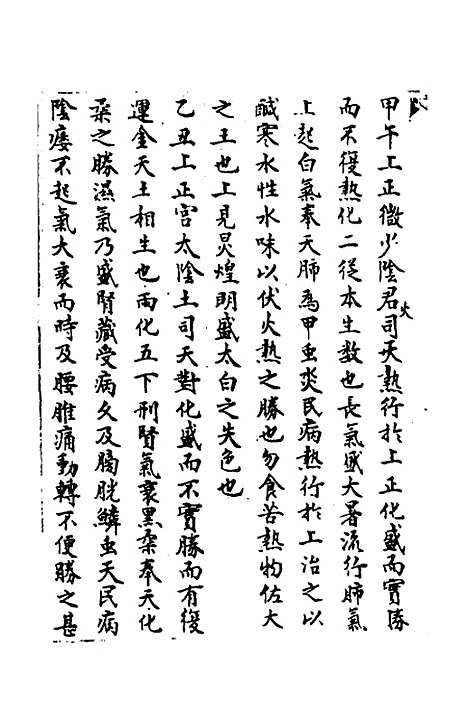 甲午上正徵少陰君火司天熱行於上正化盛而實勝
而不復熱化二從本生數也長氣盛大暑流行肺氣
上起白氣奉天肺為甲虫災民病熱行於上治之以
鹹寒水性水味以伏火熱之勝也勿食苦熱物佐大
之王也上見熒煌明盛太白之失色也
乙丑上正宮太陰土司天對化盛而不實勝而有復
運金天土相生也雨化五下刑腎氣衰黑桼奉天化
桼之勝濕氣乃盛腎藏受病久及膓胱鱗虫天民病
陰痿不起氣大衰而時及腰脽痛動轉不便勝之甚